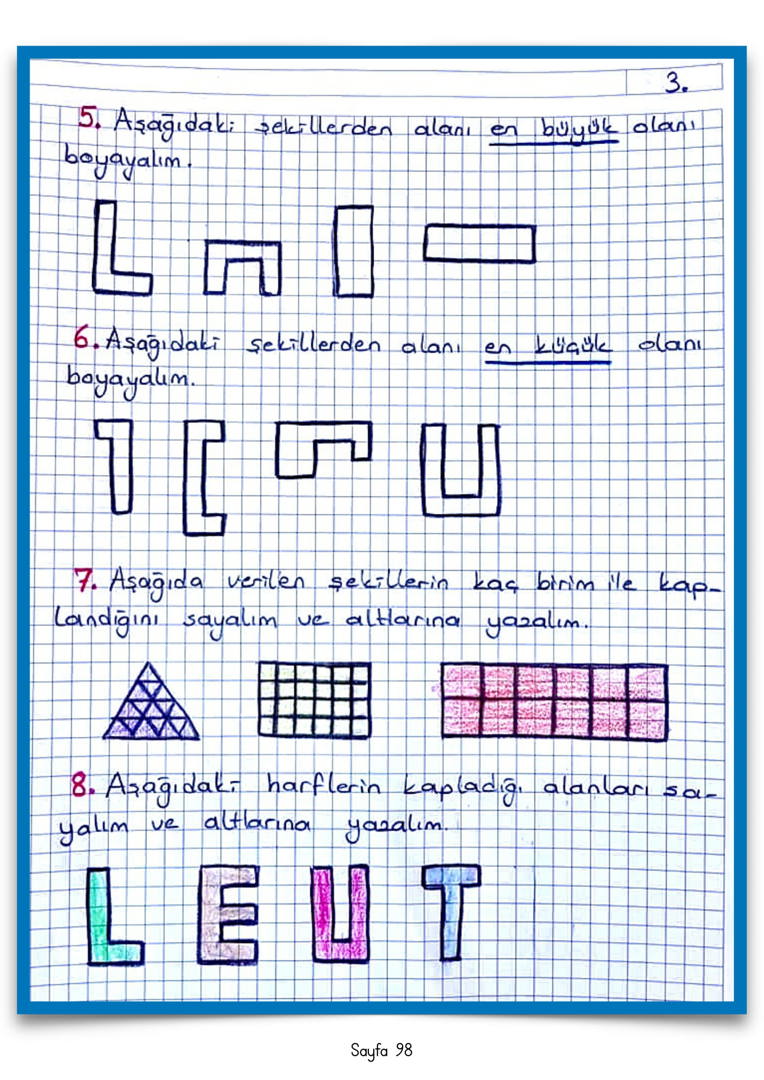 3.
5. Aşağıdaki şekillerden alanı en büyük olanı
boyayalım.
6. Aşağıdaki şekillerden alanı en küçük olanı
boyayalım.
7. Aşağıda verilen şekillerin kaç birim ile kap-
landığını sayalım ve altlarına yazalım.
8. Aşağıdaki harflerin kapladığı alanları sa-
yalım ve altlarına yazalım.
L E U T
Sayfa 98